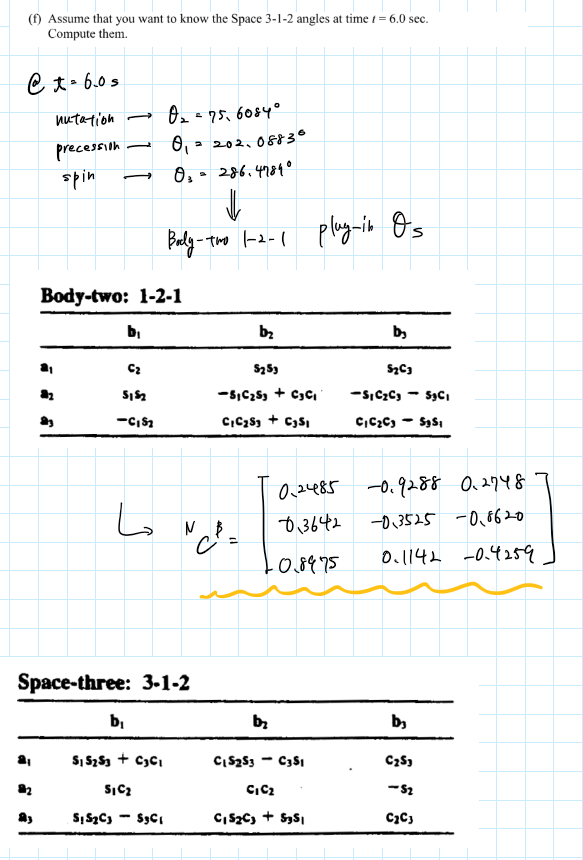 (f) Assume that you want to know the Space 3-1-2 angles at time t = 6.0 sec.
Compute them.
@ t = 6.0 s
nutation → θ₂ = 75.6084°
precession → θ₁ = 202.0883°
spin → θ₃ = 286.4784°
⇓
Body-two 1-2-1 plug-in θs
Body-two: 1-2-1
b₁ b₂ b₃
a₁ c₂ s₂s₃ s₂c₃
a₂ s₁s₂ −s₁c₂s₃ + c₃c₁ −s₁c₂c₃ − s₃c₁
a₃ −c₁s₂ c₁c₂s₃ + c₃s₁ c₁c₂c₃ − s₃s₁
0.2485 -0.9288 0.2748
↳ ᴺCᴮ = -0.3642 -0.3525 -0.8620
0.8975 0.1142 -0.4259
Space-three: 3-1-2
b₁ b₂ b₃
a₁ s₁s₂s₃ + c₃c₁ c₁s₂s₃ − c₃s₁ c₂s₃
a₂ s₁c₂ c₁c₂ −s₂
a₃ s₁s₂c₃ − s₃c₁ c₁s₂c₃ + s₃s₁ c₂c₃